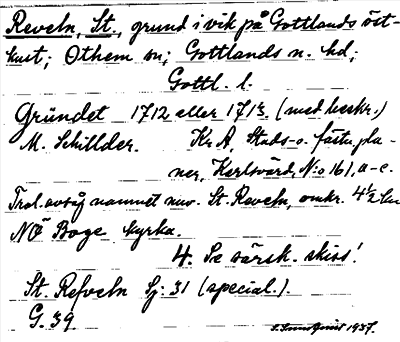 Reveln, St., grund i vik på Gottlands öst-
kust; Othem sn; Gottlands n. hd;
Gottl. l.
Gründet 1712 eller 1713. (med beskr.)
M. Schillder. Kr A, Stads- o. fästn. pla-
ner, Karlsvärd, N:o 161, a-c.
Trol. avsåg namnet nuv. St. Reveln, omkr. 4½ km
NÖ Boge kyrka.
4. Se särsk. skiss!
St. Refveln Sj: 31 (special.)
G. 39
1937.